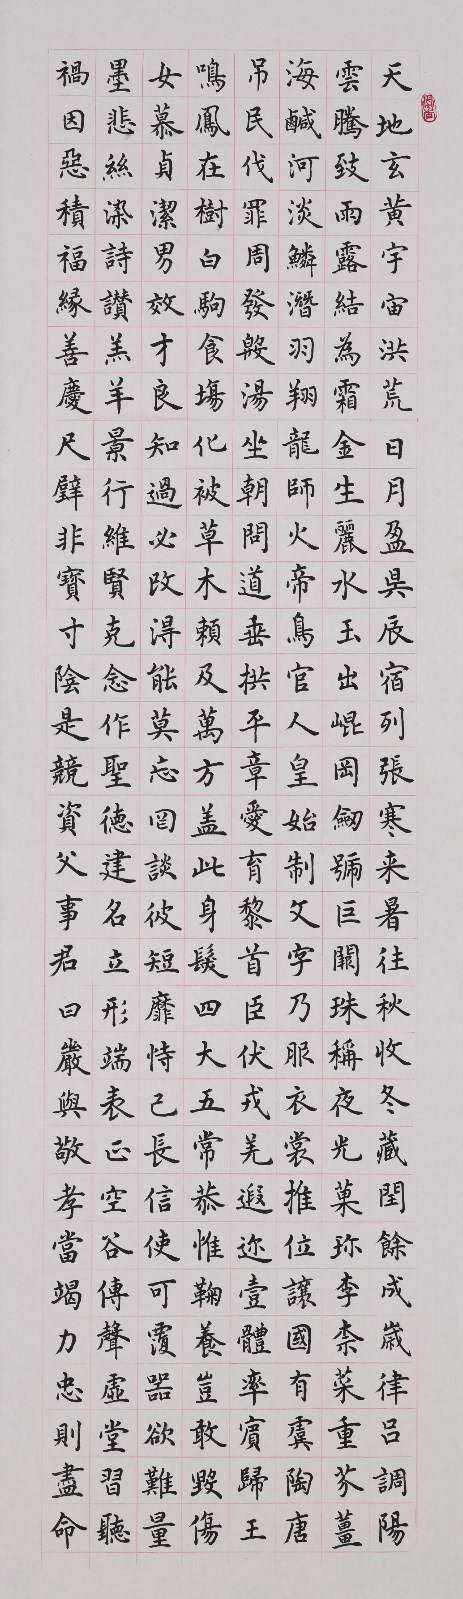 天地玄黃宇宙洪荒日月盈昃辰宿列張寒来暑往秋收冬藏閏餘成歲律呂調陽
雲騰致雨露結為霜金生麗水玉出崐岡劒號巨闕珠稱夜光菓珎李柰菜重芥薑
海鹹河淡鱗潛羽翔龍師火帝鳥官人皇始制文字乃服衣裳推位讓國有虞陶唐
吊民伐罪周發殷湯坐朝問道垂拱平章愛育黎首臣伏戎羌遐迩壹體率賓歸王
鳴鳳在樹白駒食場化被草木賴及萬方盖此身髮四大五常恭惟鞠養豈敢毀傷
女慕貞潔男效才良知過必改得能莫忘罔談彼短靡恃己長信使可覆器欲難量
墨悲絲染詩讚羔羊景行維賢克念作聖德建名立形端表正空谷傳聲虛堂習聽
禍因惡積福緣善慶尺璧非寶寸陰是競資父事君曰嚴與敬孝當竭力忠則盡命